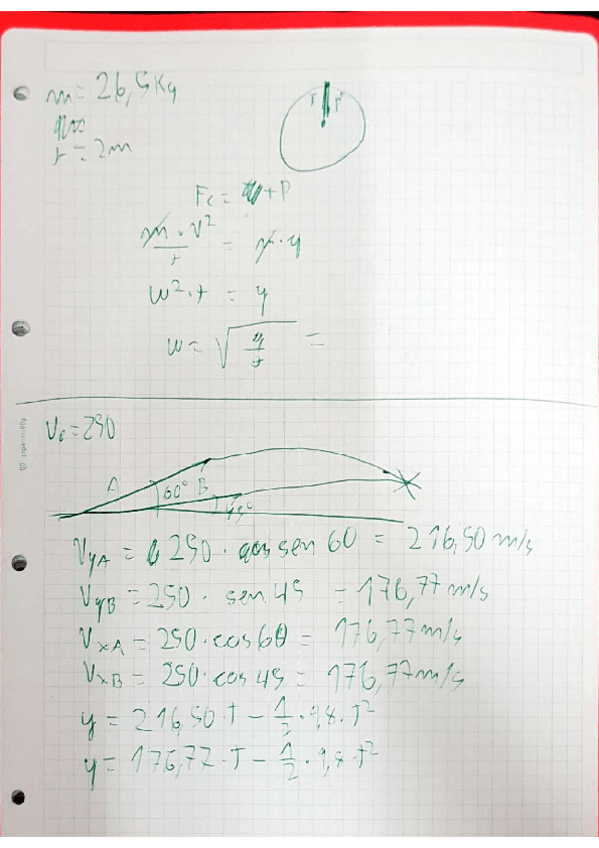 m = 26,5 Kg
r = 2m
r P
Fc = + P
m · v² / r = m · g
w² · r = g
w = √ g / r =
V₀ = 250
A 60° B 45°
VyA = 250 · sen 60 = 216,50 m/s
VyB = 250 · sen 45 = 176,77 m/s
VxA = 250 · cos 60 = 176,77 m/s
VxB = 250 · cos 45 = 176,77 m/s
y = 216,50 · T - 1/2 · 9,8 · T²
y = 176,77 · T - 1/2 · 9,8 · T²